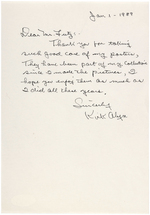 Jan 1 - 1989
Dear Mr Fritz:-
Thank you for taking
such good care of my posters.
They have been part of my Collection
since I made the pictures. I
hope you enjoy them as much as
I did all these years.
Sincerely
Kirk Alyn